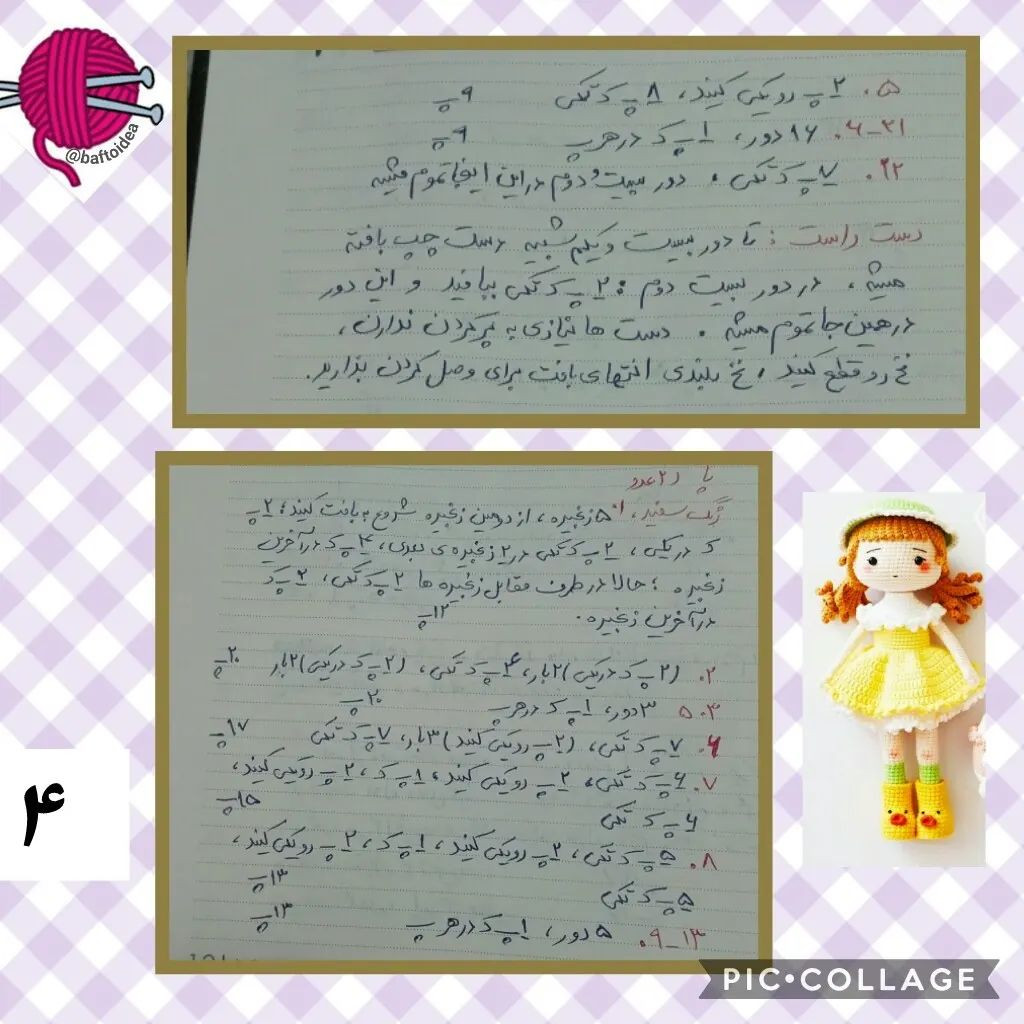 @baftoidea
۵. ۲پ رو یکی کنید، ۸پ ک تکی ۹پ
۶-۲۱. ۱۶ دور، ۱پ ک در هر پ ۹پ
۲۲. ۷پ ک تکی، دور بیست و دوم در این اینجا تموم میشه
دست راست: تا دور بیست و یکم شبیه دست چپ بافته
میشه، در دور بیست دوم: ۲پ ک تکی ببافید و این دور
در همین جا تموم میشه. دست ها نیازی به پر کردن ندارن،
نخ رو قطع کنید، نخ بلندی انتهای بافت برای وصل کردن بذارید.
پا (۲ عدد
رنگ سفید، ۱. ۵ زنجیره، از دومین زنجیره شروع به بافت کنید، ۲پ
ک در یکی، ۲پ ک تکی در ۲ زنجیره ی بعدی، ۴پ ک در آخرین
زنجیره؛ حالا در طرف مقابل زنجیره ها ۲پ ک تکی، ۲پ ک
در آخرین زنجیره. ۱۲پ
۲. (۲پ ک در یکی) ۲بار، ۴پ ک تکی، (۲پ ک در یکی) ۲بار ۲۰پ
۳-۵. ۳ دور، ۱پ ک در هر پ ۲۰پ
۶. ۷پ ک تکی، (۲پ رو یکی کنید) ۳بار، ۷پ ک تکی ۱۷پ
۷. ۶پ ک تکی، ۲پ رو یکی کنید، ۱پ ک، ۲پ رو یکی کنید،
۶پ ک تکی ۱۵پ
۸. ۵پ ک تکی، ۲پ رو یکی کنید، ۱پ ک، ۲پ رو یکی کنید،
۵پ ک تکی ۱۳پ
۹-۱۳. ۵ دور، ۱پ ک در هر پ ۱۳پ
۴
PIC•COLLAGE